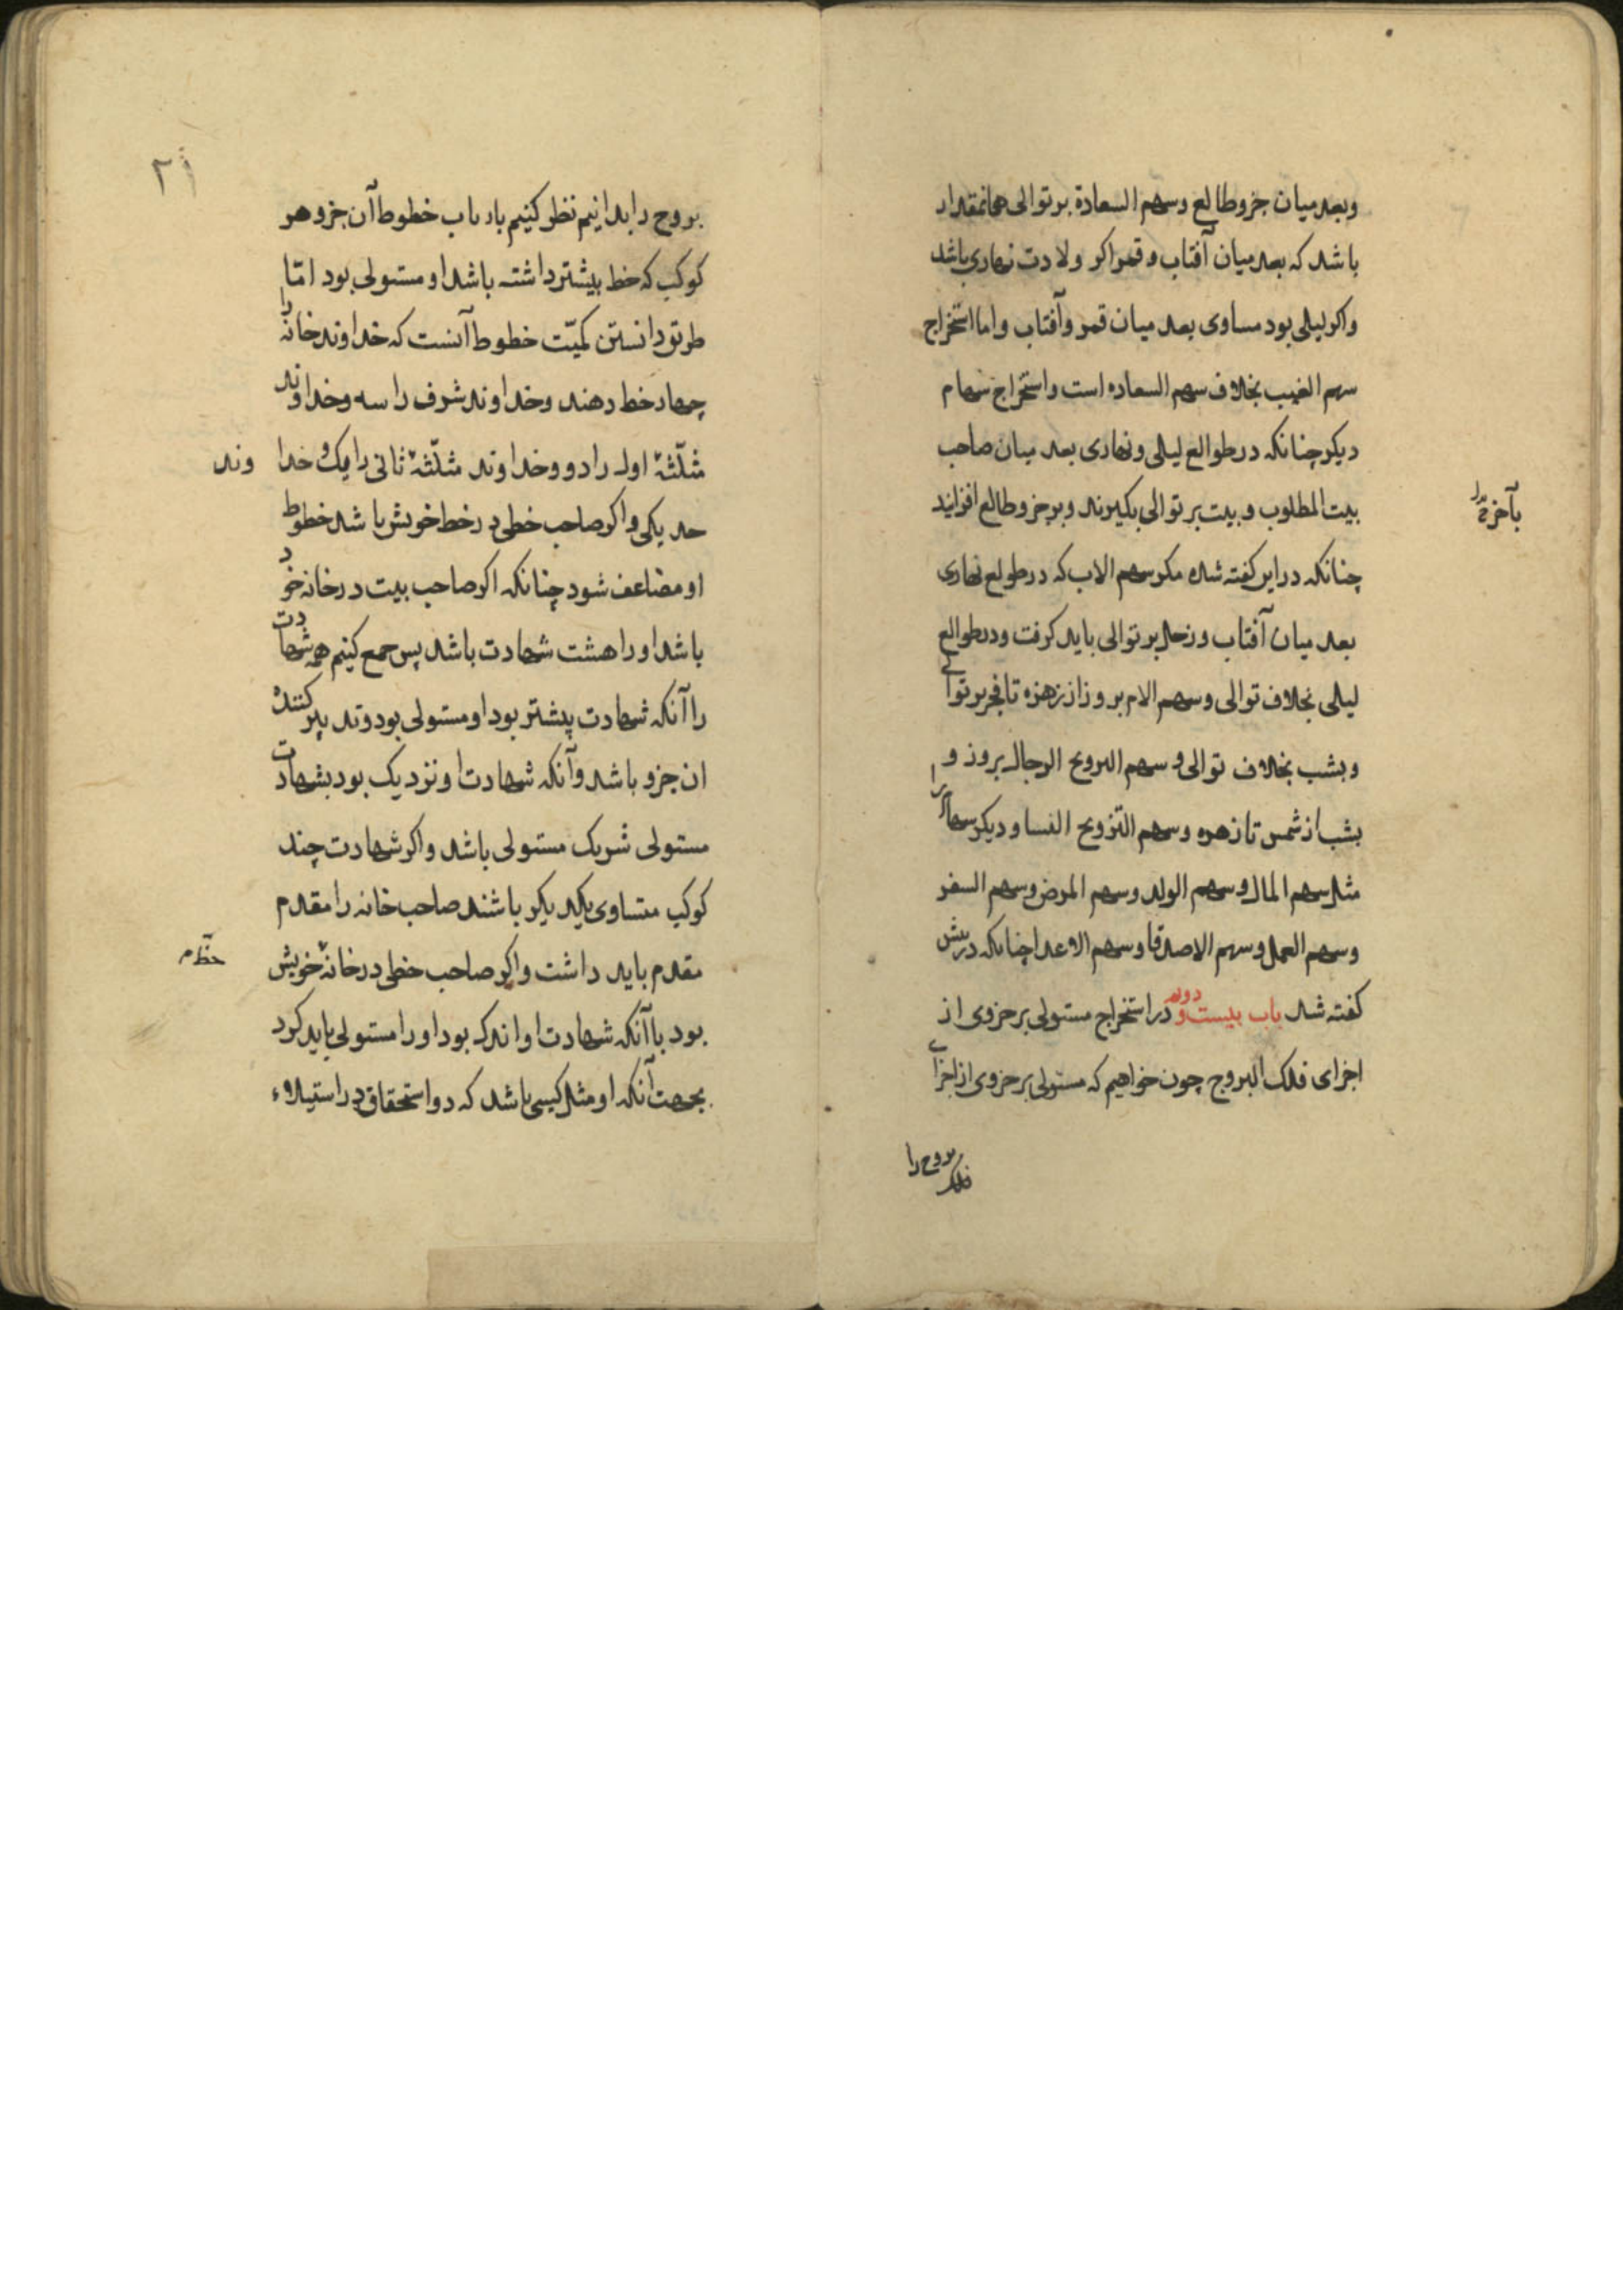 وبعد میان جزو طالع و سهم السعادة بر توالی همانمقدار
باشد که بعد میان آفتاب و قمر اکر ولادت نهاری باشد
واکر لیلی بود مساوی بعد میان قمر و آفتاب و اما استخراج
سهم الغیب بخلاف سهم السعاده است و استخراج سهام
دیکر چنانکه در طوالع لیلی و نهاری بعد میان صاحب
بیت المطلوب و بیت بر توالی بکیرند و بر جزو طالع افزایند
چنانکه در این کفته شده مکر سهم الاب که در طولع نهاری
بعد میان آفتاب و زحل بر توالی باید کرفت و در طوالع
لیلی بخلاف توالی و سهم الام بروز از زهره تا قمر بر توالی
و بشب بخلاف توالی و سهم التزویج الرجال بروز و
بشب از شمس تا زهره و سهم التزویج النسا و دیکر سهام را
مثل سهم المال و سهم الولد و سهم المرض و سهم السفر
و سهم العمل و سهم الاصدقا و سهم الاعدا چنانکه در پیش
کفته شد باب بیست و دوم در استخراج مستولی بر جزوی از
اجزای فلک البروج چون خواهیم که مستولی بر جزوی از اجزای
فلک بروج را
۲۱
بروج را بدانیم نظر کنیم بارباب خطوط آن جزو هر
کوکب که خط بیشتر داشته باشد او مستولی بود امّا
طریق دانستن کمیّت خطوط آنست که خداوند خانه را
چهار خط دهند و خداوند شرف را سه و خداوند
مثلّثهٔ اول را دو و خداوند مثلّثهٔ ثانی را یک و خدا وند
حد یکی و اکر صاحب خطی در خط خویش باشد خطوط
او مضاعف شود چنانکه اکر صاحب بیت در خانه خود
باشد او را هشت شهادت باشد پس جمع کنیم همه شهادت
را آنکه شهادت بیشتر بود او مستولی بود و تدبیر کننده
ان جزو باشد و آنکه شهادت او نزدیک بود بشهادت
مستولی شریک مستولی باشد و اکر شهادت چند
کوکب متساوی یکدیکر باشند صاحب خانه را مقدم
مقدم باید داشت و اکر صاحب خطی در خانهٔ خویش
بود با آنکه شهادت او اندک بود او را مستولی باید کرد
بجهت آنکه او مثل کسی باشد که دو استحقاق در استیلاء